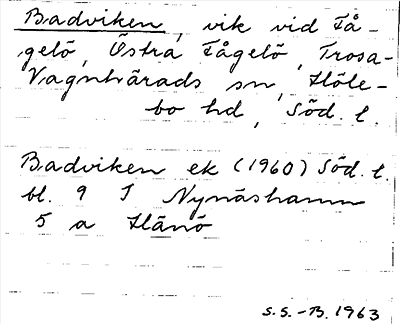 Badviken, vik vid Få-
gelö, Östra Fågelö, Trosa-
Vagnhärads sn, Höle-
bo hd, Söd. l.
Badviken ek (1960) Söd. l.
bl. 9 I Nynäshamn
5 a Hånö
S.S.-B. 1963